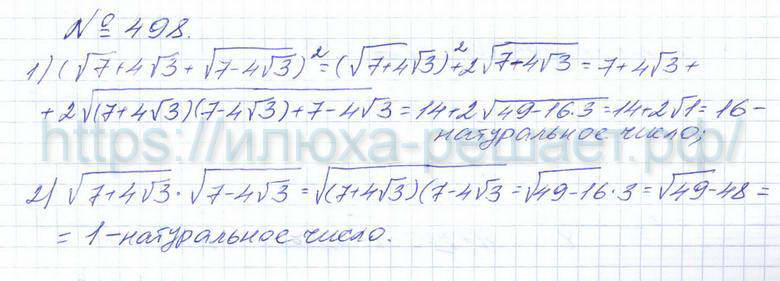 № 498.
1) (√7+4√3 + √7-4√3)² = (√7+4√3)² + 2√7-4√3 = 7+4√3 +
+ 2√(7+4√3)(7-4√3) + 7-4√3 = 14+2√49-16·3 = 14+2√1 = 16 –
натуральное число;
https://илюха-решает.рф/
2) √7+4√3 · √7-4√3 = √(7+4√3)(7-4√3 = √49-16·3 = √49-48 =
= 1 – натуральное число.